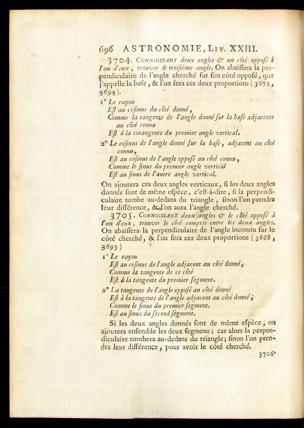 696 ASTRONOMIE, LIV. XXIII.
3704. CONNOISSANT deux angles & un côté opposé à
l'un d'eux, trouver le troisième angle. On abaissera la per-
pendiculaire de l'angle cherché sur son côté opposé, que
j'appelle la base, & l'on fera ces deux proportions (3671,
3694).
1° Le rayon
Est au cosinus du côté donné,
Comme la tangente de l'angle donné sur la base adjacente
au côté connu
Est à la cotangente du premier angle vertical.
2° Le cosinus de l'angle donné sur la base, adjacent au côté
connu,
Est au cosinus de l'angle opposé au côté connu,
Comme le sinus du premier angle vertical
Est au sinus de l'autre angle vertical.
On ajoutera ces deux angles verticaux, si les deux angles
donnés sont de même espèce, c'est-à-dire, si la perpendi-
culaire tombe au-dedans du triangle, sinon l'on prendra
leur différence, & l'on aura l'angle cherché.
3705. CONNOISSANT deux angles & le côté opposé à
l'un d'eux, trouver le côté compris entre les deux angles.
On abaissera la perpendiculaire de l'angle inconnu sur le
côté cherché, & l'on fera ces deux proportions (3668,
3693)
1° Le rayon
Est au cosinus de l'angle adjacent au côté donné,
Comme la tangente de ce côté
Est à la tangente du premier segment.
2° La tangente de l'angle opposé au côté donné
Est à la tangente de l'angle adjacent au côté donné;
Comme le sinus du premier segment.
Est au sinus du second segment.
Si les deux angles donnés sont de même espèce, on
ajoutera ensemble les deux segmens; car alors la perpen-
diculaire tombera au-dedans du triangle; sinon l'on pren-
dra leur différence, pour avoir le côté cherché.
3706.